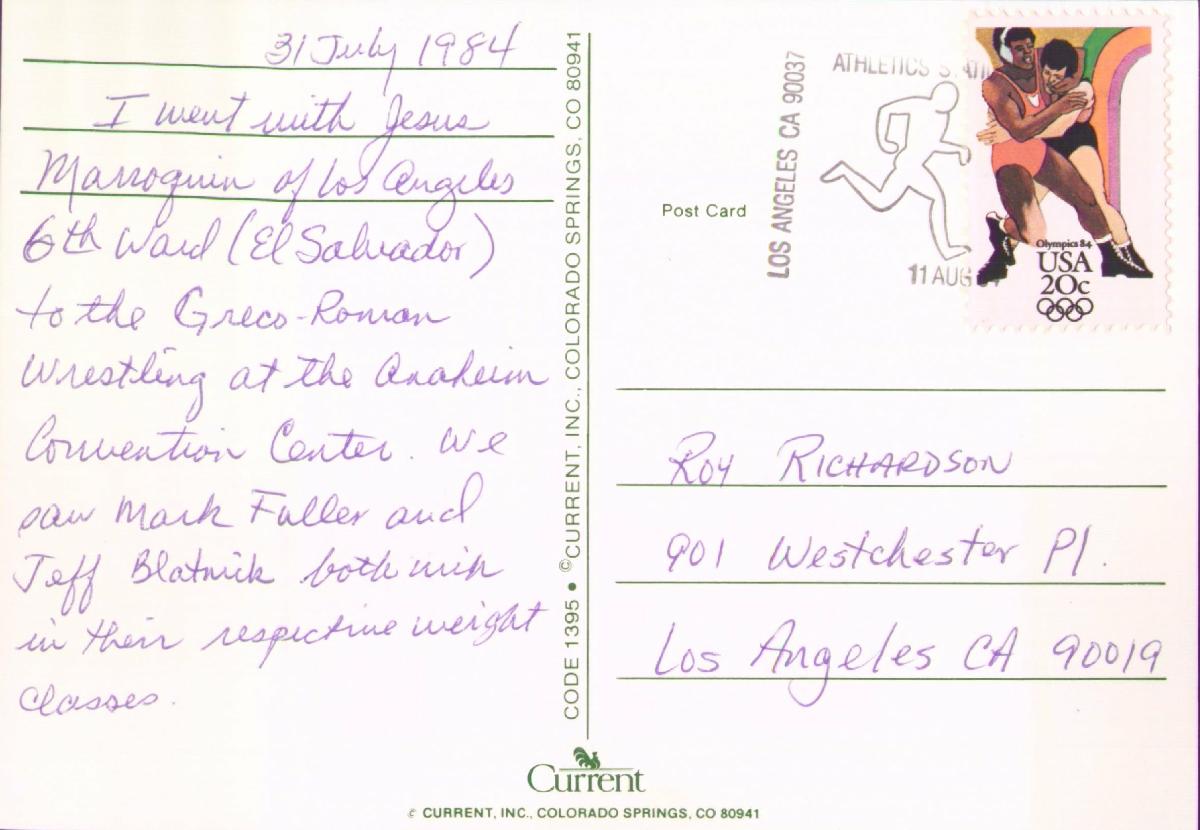 31 July 1984
I went with Jesus
Marroquin of Los Angeles
6th Ward (El Salvador)
to the Greco-Roman
Wrestling at the Anaheim
Convention Center. We
saw Mark Fuller and
Jeff Blatnick both win
in their respective weight
classes.
CODE 1395 • ©CURRENT, INC., COLORADO SPRINGS, CO 80941
Post Card
LOS ANGELES CA 90037
ATHLETICS
11 AUG
Olympics 84
USA
20c
Roy RICHARDSON
901 Westchester Pl.
Los Angeles CA 90019
Current
© CURRENT, INC., COLORADO SPRINGS, CO 80941